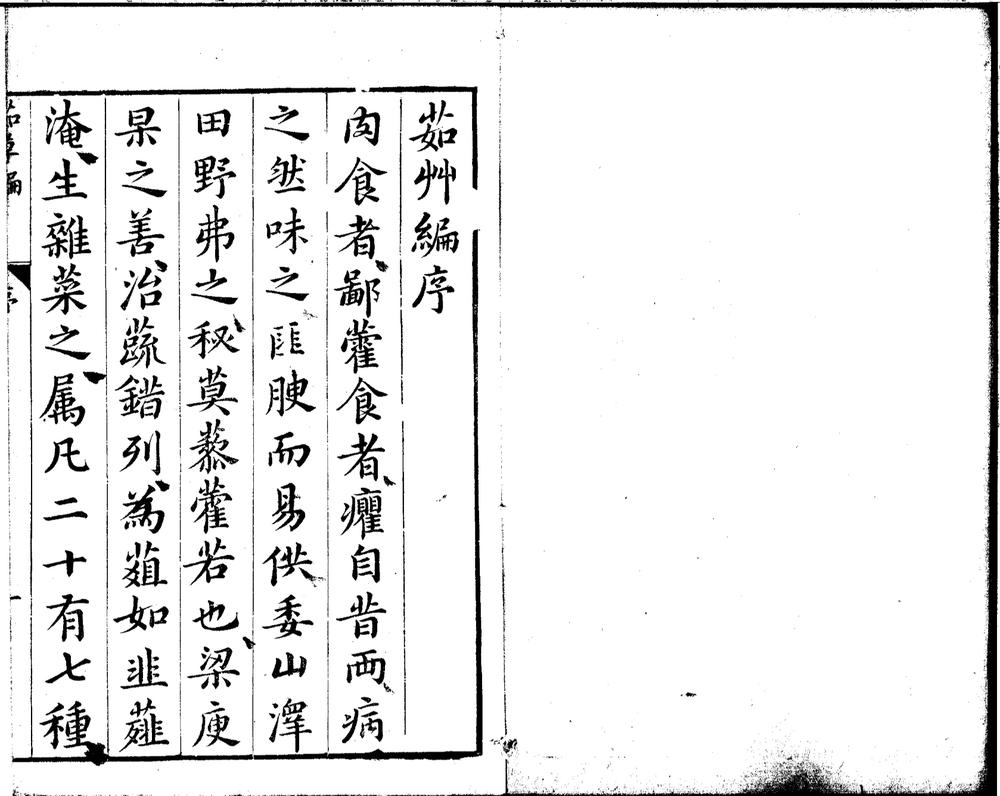 茹艸編序
肉食者鄙藿食者癯自昔兩病
之然味之匪腴而易供委山澤
田野弗之秘莫蓺藿若也梁庾
杲之善治蔬錯列為葅如韭薤
淹生雜菜之属凡二十有七種
茹草編
序
一